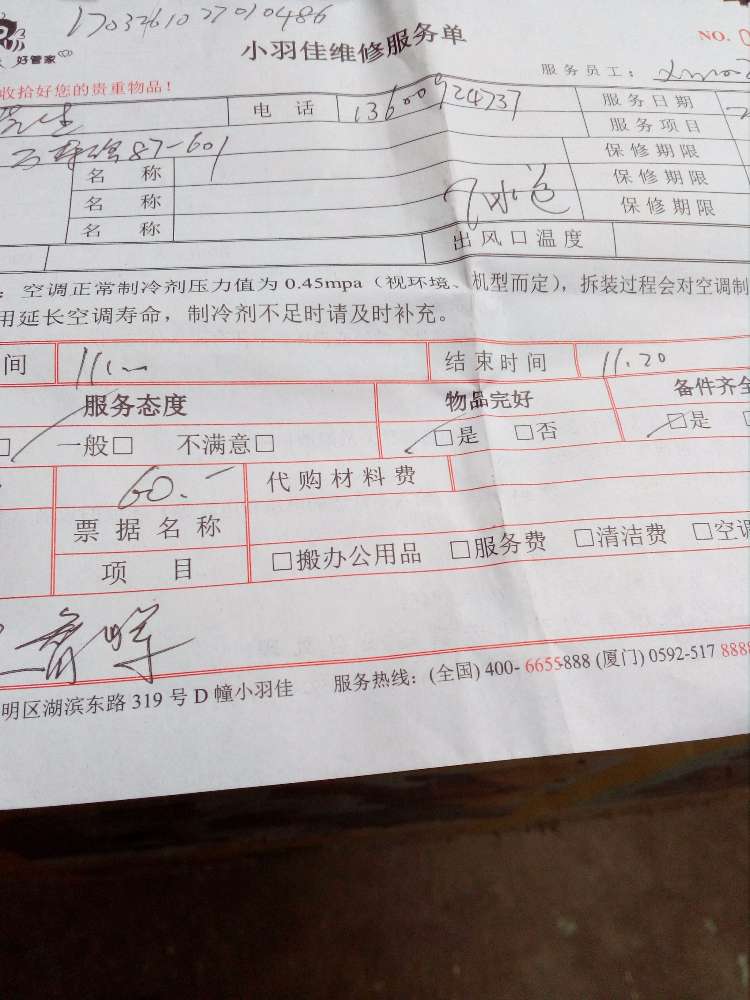 17037610277010486
小羽佳维修服务单
NO.
好管家
服务员工：
收拾好您的贵重物品！
电 话 13600924737 服务日期
服务项目
87-601
保修期限
名 称 保修期限
名 称
名 称 保修期限
出风口温度
：空调正常制冷剂压力值为 0.45mpa（视环境、机型而定），拆装过程会对空调制
用延长空调寿命，制冷剂不足时请及时补充。
间 11:00 结束时间 11.20
服务态度 物品完好 备件齐全
□ 一般□ 不满意□ □是 □否 □是
60.- 代购材料费
票据名称
项 目 □搬办公用品 □服务费 □清洁费 □空调
明区湖滨东路 319 号 D 幢小羽佳 服务热线：(全国) 400- 6655-888 (厦门) 0592-517 8888